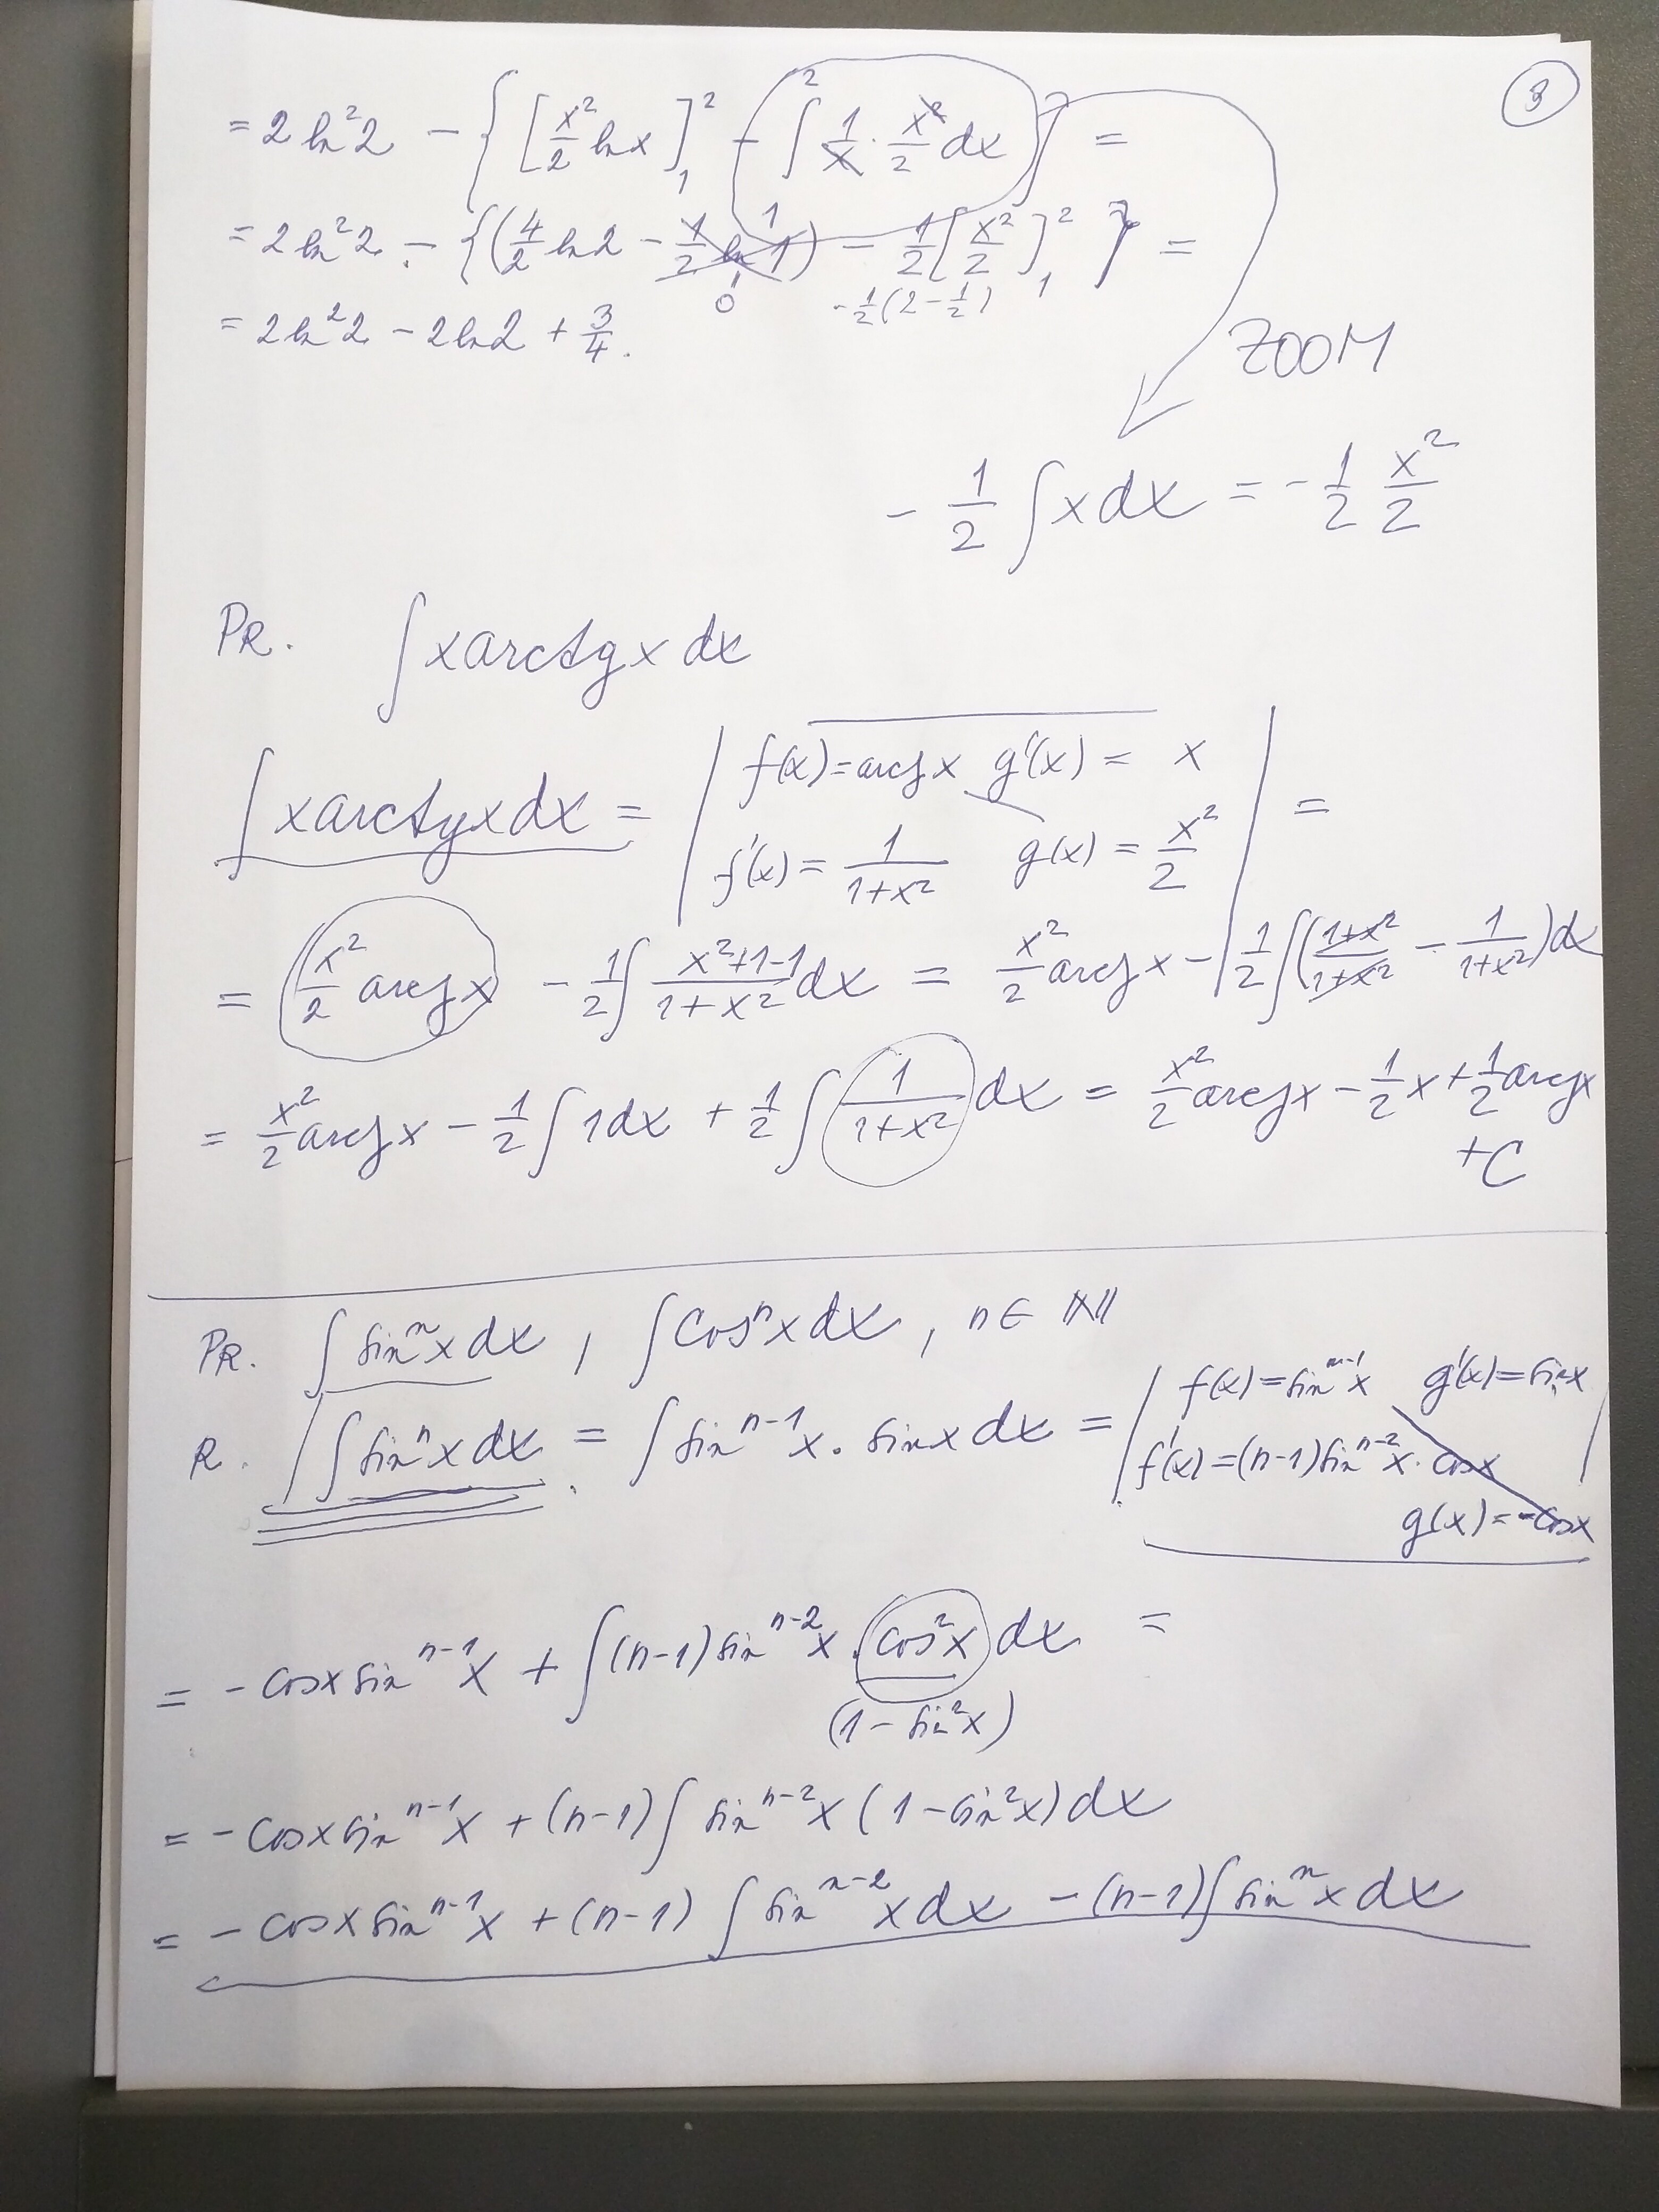 3
= 2 ln²2 − { [x²/2 ln x]₁² − ∫₁² 1/x · x²/2 dx } =
= 2 ln²2 − { (4/2 ln 2 − 1/2 ln 1) − 1/2 [x²/2]₁² } =
0 −1/2(2 − 1/2)
= 2 ln²2 − 2 ln 2 + 3/4.
ZOOM
− 1/2 ∫ x dx = − 1/2 x²/2
PR. ∫ x arctg x dx
∫ x arctg x dx = | f(x) = arctg x g'(x) = x | =
f'(x) = 1/(1+x²) g(x) = x²/2
= x²/2 arctg x − 1/2 ∫ (x²+1−1)/(1+x²) dx = x²/2 arctg x − 1/2 ∫ ((1+x²)/(1+x²) − 1/(1+x²)) dx
= x²/2 arctg x − 1/2 ∫ 1 dx + 1/2 ∫ 1/(1+x²) dx = x²/2 arctg x − 1/2 x + 1/2 arctg x
+ C
PR. ∫ sinⁿx dx , ∫ cosⁿx dx , n ∈ ℕ
R. ∫ sinⁿx dx = ∫ sinⁿ⁻¹x · sin x dx = | f(x) = sinⁿ⁻¹x g'(x) = sin x |
f'(x) = (n−1) sinⁿ⁻²x · cos x
g(x) = −cos x
= − cos x sinⁿ⁻¹x + ∫ (n−1) sinⁿ⁻²x · cos²x dx =
(1 − sin²x)
= − cos x sinⁿ⁻¹x + (n−1) ∫ sinⁿ⁻²x (1 − sin²x) dx
= − cos x sinⁿ⁻¹x + (n−1) ∫ sinⁿ⁻²x dx − (n−1) ∫ sinⁿx dx